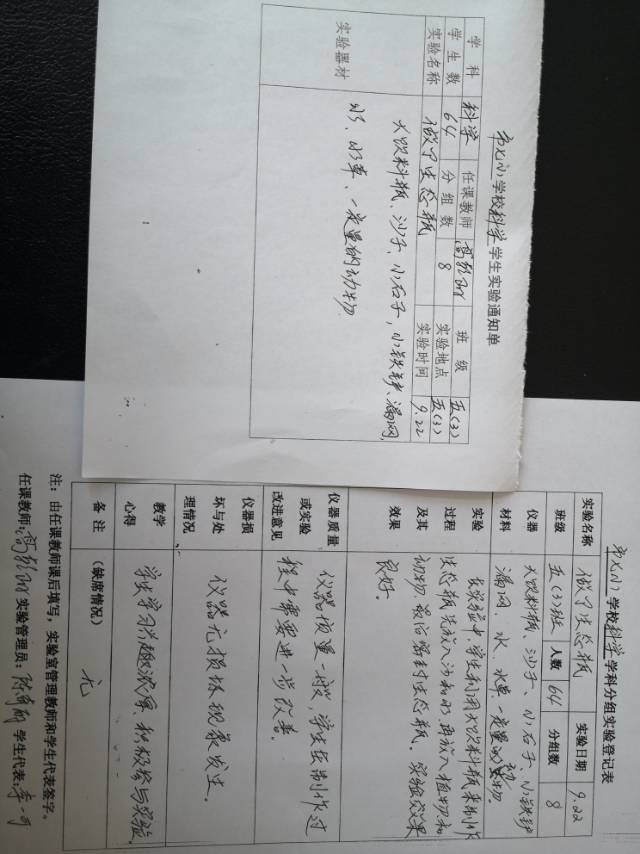 学校科学学生实验通知单
学科 科学 任课教师 班级 五(3)
学生数 64 分组数 8 实验地点 五(3)
实验名称 做个生态瓶 实验时间 9.22
实验器材
大饮料瓶、沙子、小石子、小铁铲、漏网、
水、水草、一定量的动物
学校科学学科分组实验登记表
实验名称 做个生态瓶 实验日期 9.22
班级 五(3)班 人数 64 分组数 8
仪器材料
大饮料瓶、沙子、小石子、小铁铲
漏网、水、水草、一定量的动物
实验过程及其效果
在实验中,学生利用大饮料瓶来制作
生态瓶,先放入沙和水,再放入植物和
动物,最后密封生态瓶。实验效果
良好。
仪器质量或实验改进意见
仪器质量一般,学生在制作过
程中需要进一步改善。
仪器损坏与处理情况
仪器无损坏现象发生。
教学心得
学生学习兴趣浓厚,积极参与实验。
备注 (缺席情况) 无
注:由任课教师课后填写,实验室管理教师和学生代表签字。
任课教师: 实验管理员: 学生代表: